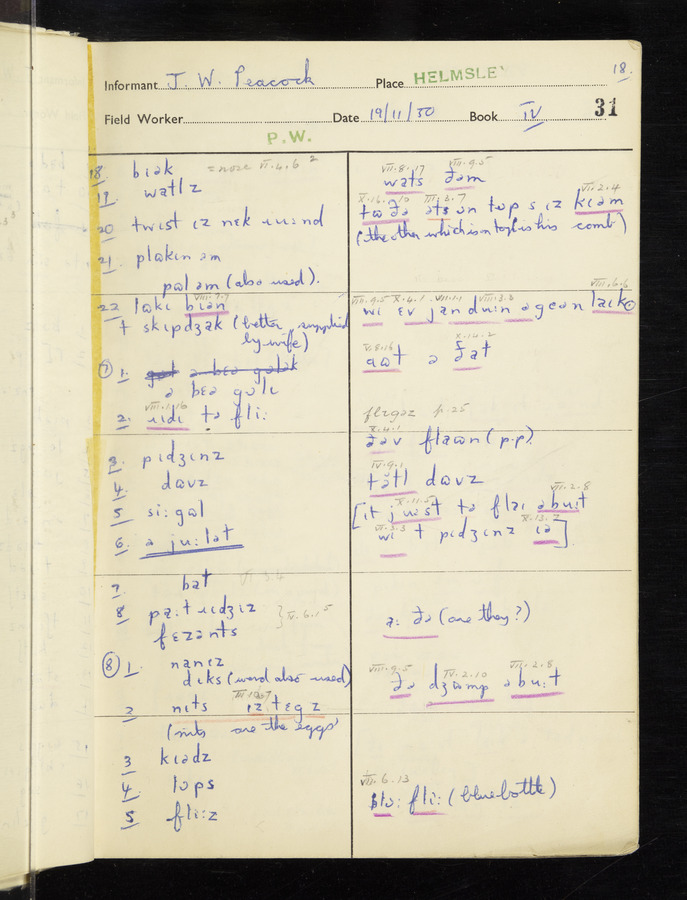 18.
Informant J. W. Peacock Place HELMSLEY
Field Worker Date 19/11/50 Book IV 31
P.W.
18. bɪək = nose VI.4.6 2
19. watlz
20 twɪst ɪz nɛk ɹuːnd
21. pləkɪn əm
pəl əm (also used).
22 lʊkɪ bɪən VIII.7.7
+ skɪpdʒak (better, supplied
by wife)
⑦ 1.
ə bɛə gʊlɪ
2. ɹɪdɪ tə fliː VIII.1.16
3. pɪdʒɪnz
4. dʊvz
5 siːgəl
6. ə juːlət
7. bat VI.3.4
8 paːtɹɪdʒɪz } IV.6.1 5
fɛzənts
⑧ 1. nanɪz
dɪks (word also used)
2 nɪts ɪz t ɛgz
(nits are the eggs)
3 kɪadz
4. lɒps
5 fliːz
VII.8.17 VIII.9.5
wats ðəm
VI.2.4
tʊðə əts ɒn tɒp s ɪz kɪəm
(the other which is on top is his comb)
VIII.9.5 X.4.1 VII.1.1 VIII.3.3 VIII.6.6
wɪ ɛv jan dʊɪn əgɛən laɪk
V.8.16 X.14.2
aʊt ə ðat
p.25
X.4.1
ðəv flaʊn (p.p)
IV.9.1
tatl dʊvz
VII.2.8
[ɪt jʊəst tə flaɪ əbuːt
VII.3.3
wɪ t pɪdʒɪnz ɪə]
aː ðə (are they?)
VIII.9.5 IV.2.10 VII.2.8
ðə dʒʊmp əbuːt
VII.6.13
bluː fliː (bluebottle)